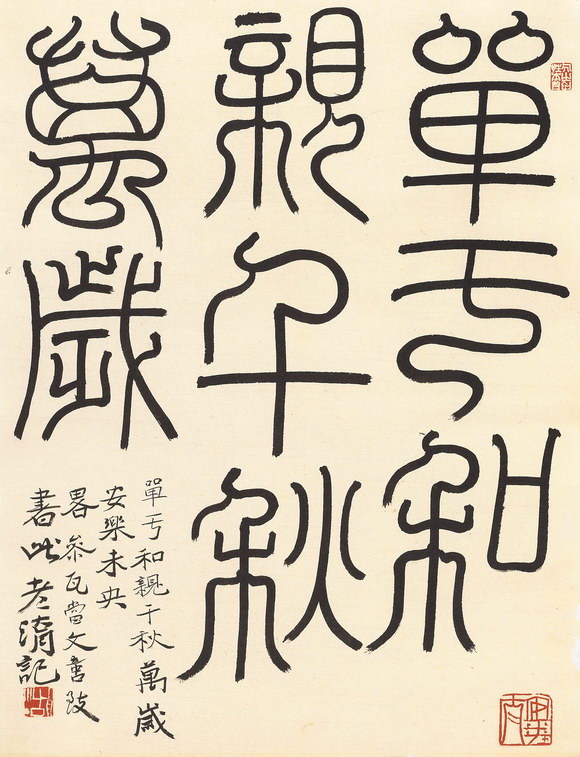 單于和
親千秋
萬歲
單于和親千秋萬歲
安樂未央
畧參瓦當文
書此老 記